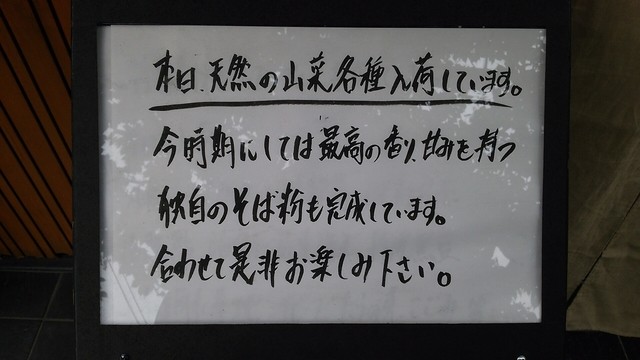 本日、天然の山菜各種入荷しています。
今時期にしては最高の香り、甘みを持つ
独自のそば粉も完成しています。
合わせて是非お楽しみ下さい。